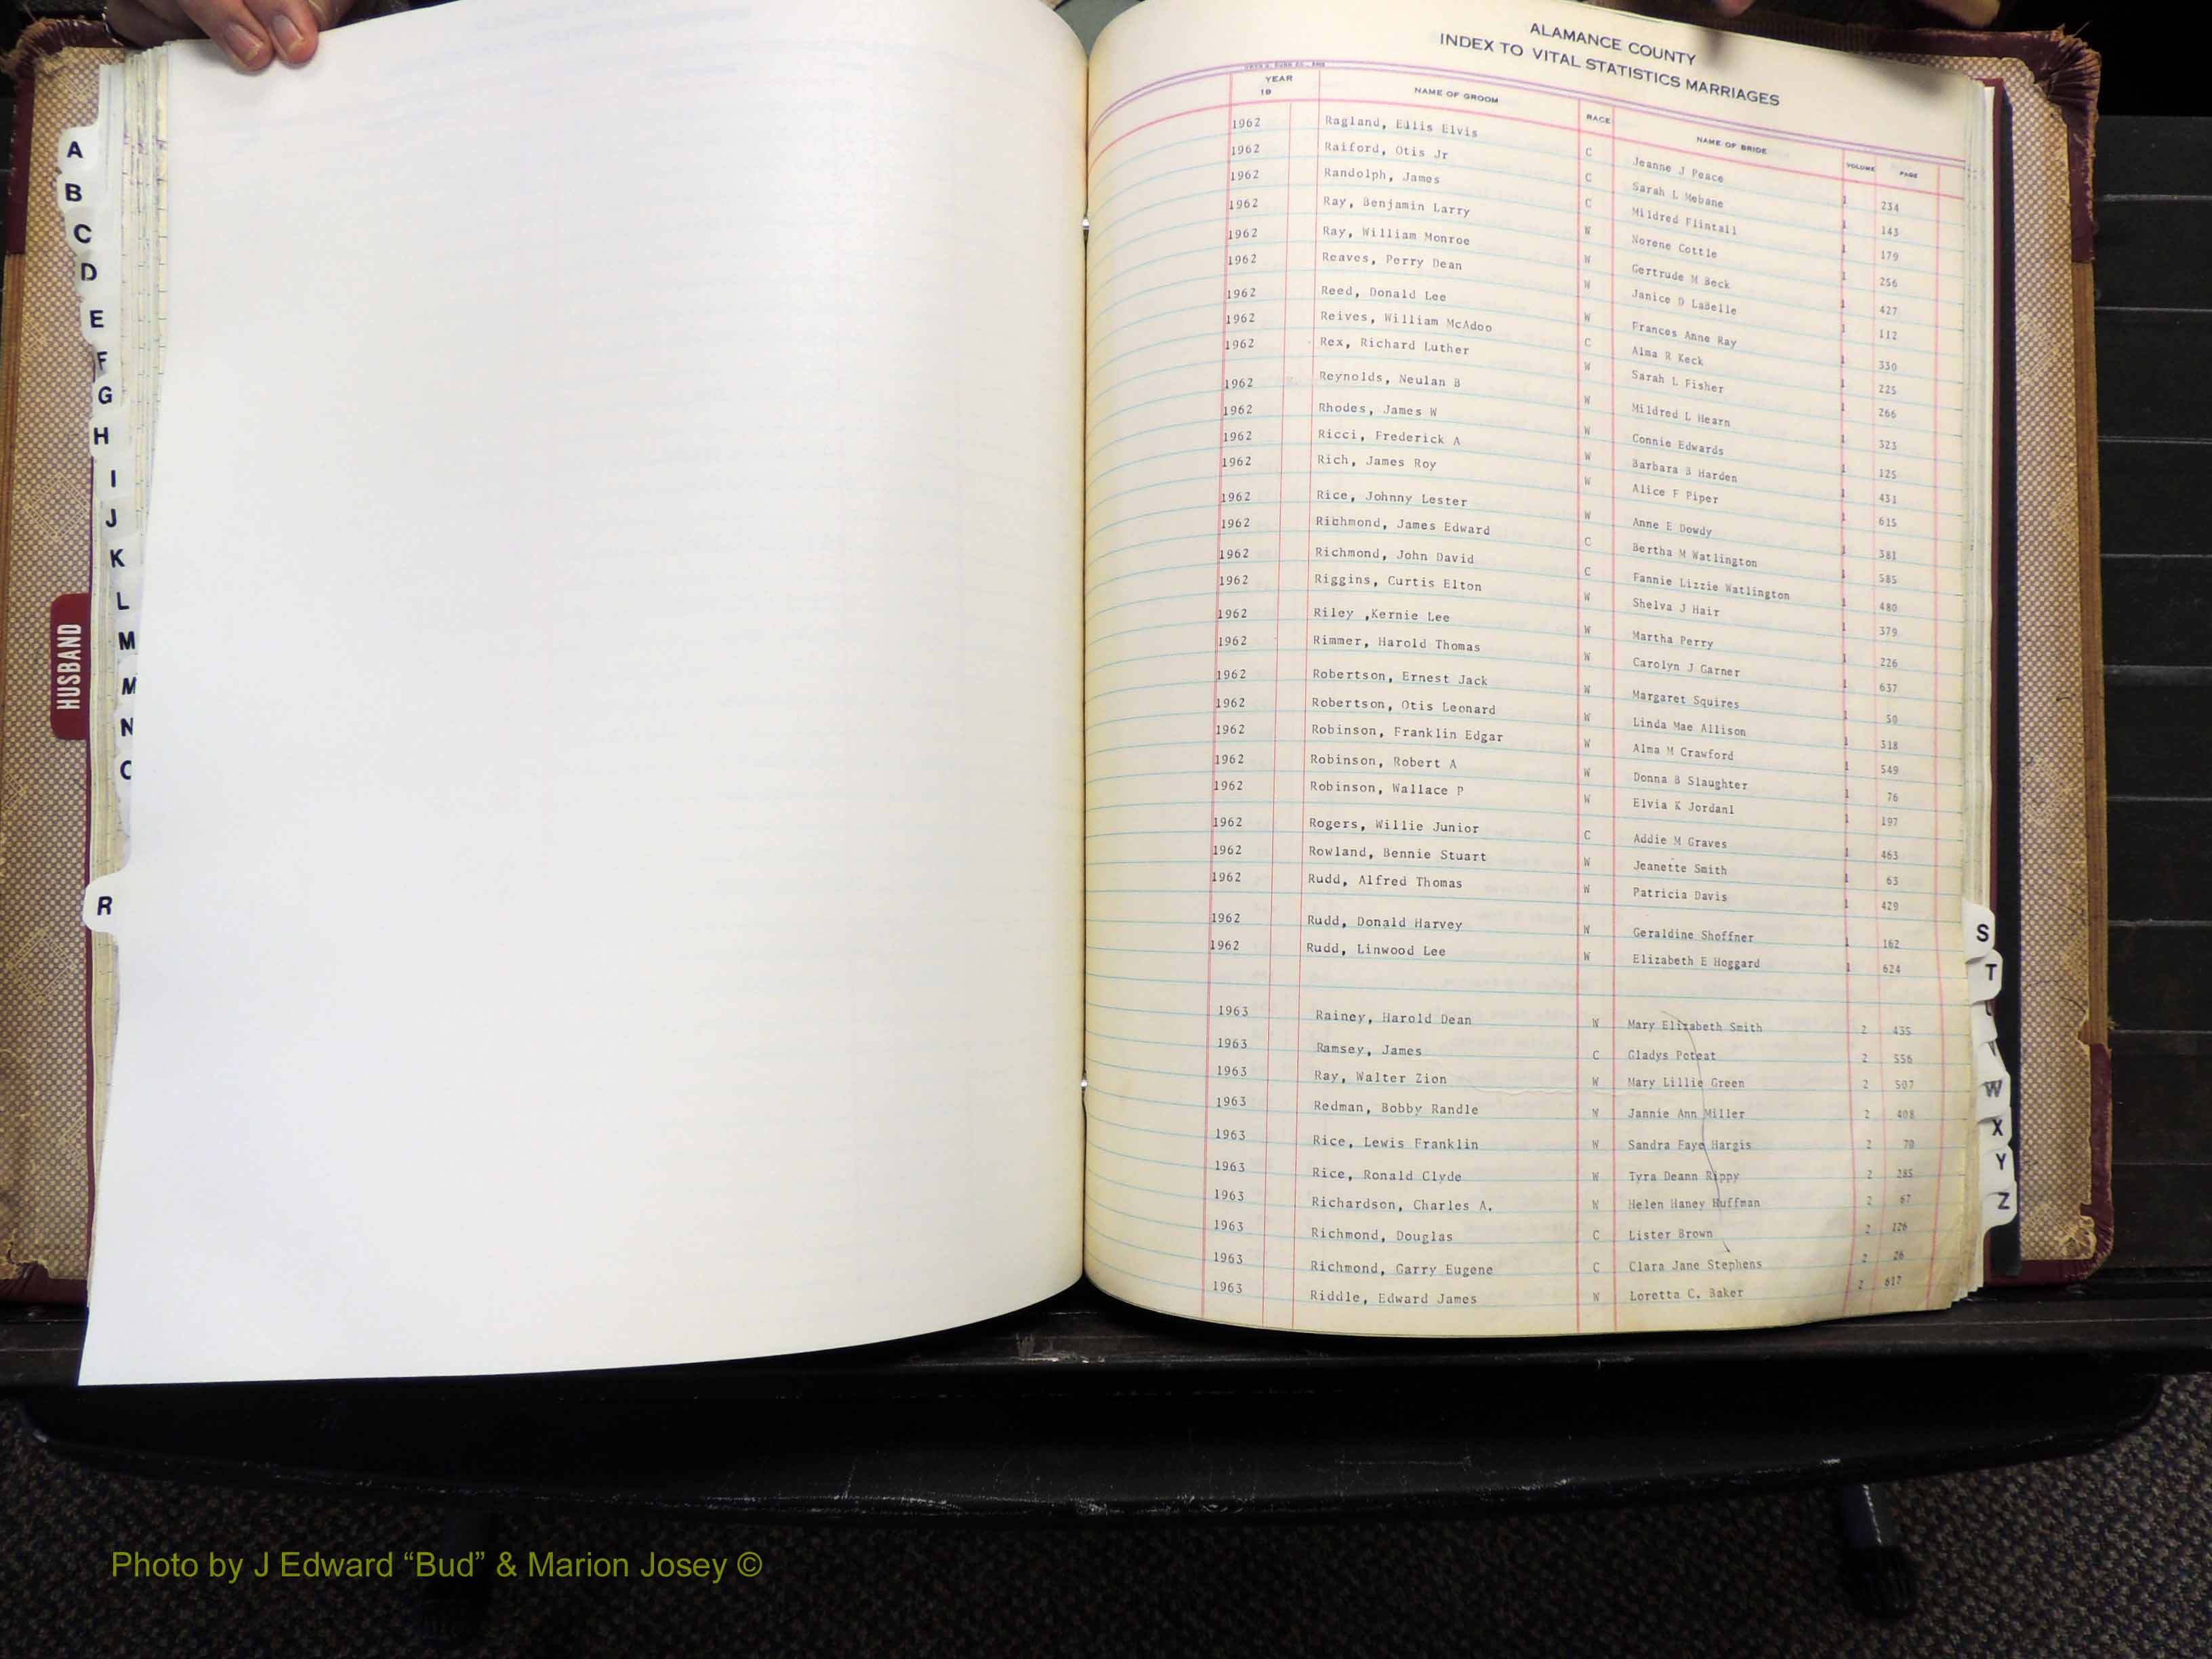 ALAMANCE COUNTY
INDEX TO VITAL STATISTICS MARRIAGES
YEAR 19 NAME OF GROOM RACE NAME OF BRIDE VOLUME PAGE
1962 Ragland, Ellis Elvis C Jeanne J Peace 1 234
1962 Raiford, Otis Jr C Sarah L Mebane 1 143
1962 Randolph, James C Mildred Flintall 1 179
1962 Ray, Benjamin Larry W Norene Cottle 1 256
1962 Ray, William Monroe W Gertrude M Beck 1 427
1962 Reaves, Perry Dean W Janice D LaBelle 1 112
1962 Reed, Donald Lee W Frances Anne Ray 1 330
1962 Reives, William McAdoo C Alma R Keck 1 225
1962 Rex, Richard Luther W Sarah L Fisher 1 266
1962 Reynolds, Neulan B W Mildred L Hearn 1 323
1962 Rhodes, James W W Connie Edwards 1 125
1962 Ricci, Frederick A W Barbara B Harden 1 431
1962 Rich, James Roy W Alice F Piper 1 615
1962 Rice, Johnny Lester W Anne E Dowdy 1 381
1962 Richmond, James Edward C Bertha M Watlington 1 585
1962 Richmond, John David C Fannie Lizzie Watlington 1 480
1962 Riggins, Curtis Elton W Shelva J Hair 1 379
1962 Riley ,Kernie Lee W Martha Perry 1 226
1962 Rimmer, Harold Thomas W Carolyn J Garner 1 637
1962 Robertson, Ernest Jack W Margaret Squires 1 50
1962 Robertson, Otis Leonard W Linda Mae Allison 1 318
1962 Robinson, Franklin Edgar W Alma M Crawford 1 549
1962 Robinson, Robert A W Donna B Slaughter 1 76
1962 Robinson, Wallace P W Elvia K Jordanl 1 197
1962 Rogers, Willie Junior C Addie M Graves 1 463
1962 Rowland, Bennie Stuart W Jeanette Smith 1 63
1962 Rudd, Alfred Thomas W Patricia Davis 1 429
1962 Rudd, Donald Harvey W Geraldine Shoffner 1 162
1962 Rudd, Linwood Lee W Elizabeth E Hoggard 1 624
1963 Rainey, Harold Dean W Mary Elizabeth Smith 2 435
1963 Ramsey, James C Gladys Poteat 2 556
1963 Ray, Walter Zion W Mary Lillie Green 2 507
1963 Redman, Bobby Randle W Jannie Ann Miller 2 408
1963 Rice, Lewis Franklin W Sandra Faye Hargis 2 70
1963 Rice, Ronald Clyde W Tyra Deann Rippy 2 285
1963 Richardson, Charles A. W Helen Haney Huffman 2 67
1963 Richmond, Douglas C Lister Brown 2 126
1963 Richmond, Garry Eugene C Clara Jane Stephens 2 26
1963 Riddle, Edward James W Loretta C. Baker 2 617
A
B
C
D
E
F
G
H
I
J
K
L
M
M
N
R
HUSBAND
S
T
W
X
Y
Z
Photo by J Edward “Bud” & Marion Josey ©